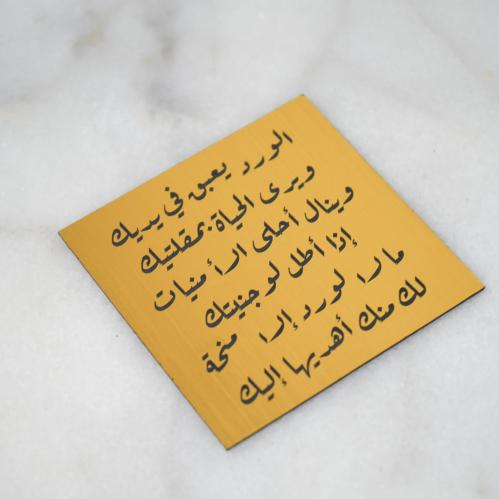 الورد يعبق في يديك
ويرى الحياة بمقلتيك
وينال أحلى الأمنيات
إذا أطل لوجنيتك
ما را لورد إلا منحة
لك منك أهديها إليك